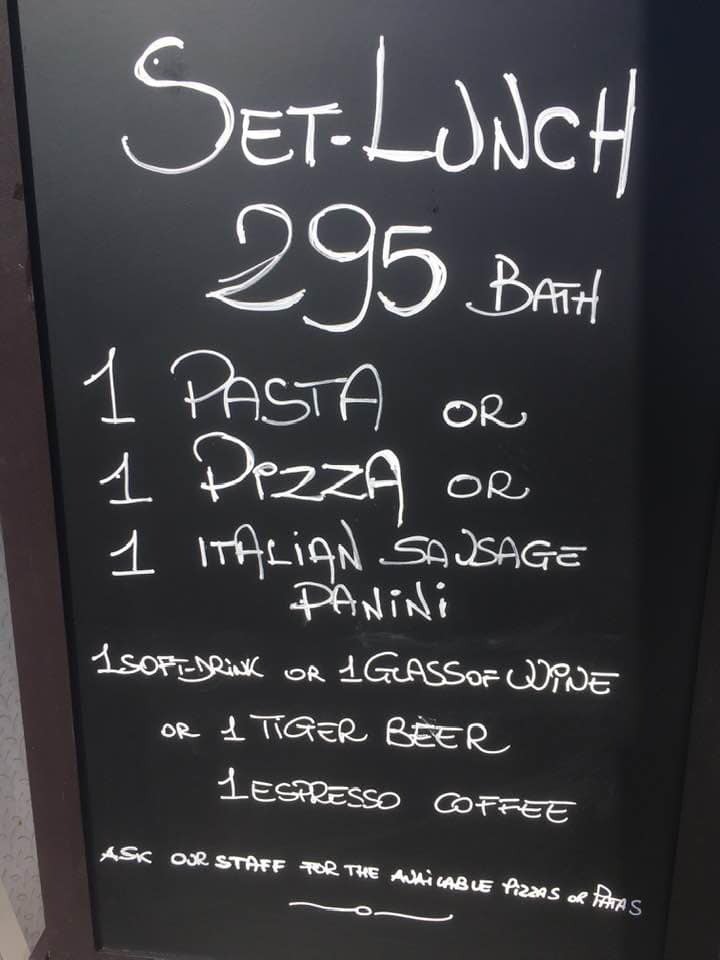 SET-LUNCH
295 BATH
1 PASTA OR
1 PIZZA OR
1 ITALIAN SAUSAGE
PANINI
1 SOFT-DRINK OR 1 GLASS OF WINE
OR 1 TIGER BEER
1 ESPRESSO COFFEE
ASK OUR STAFF FOR THE AVAILABLE PIZZAS OR